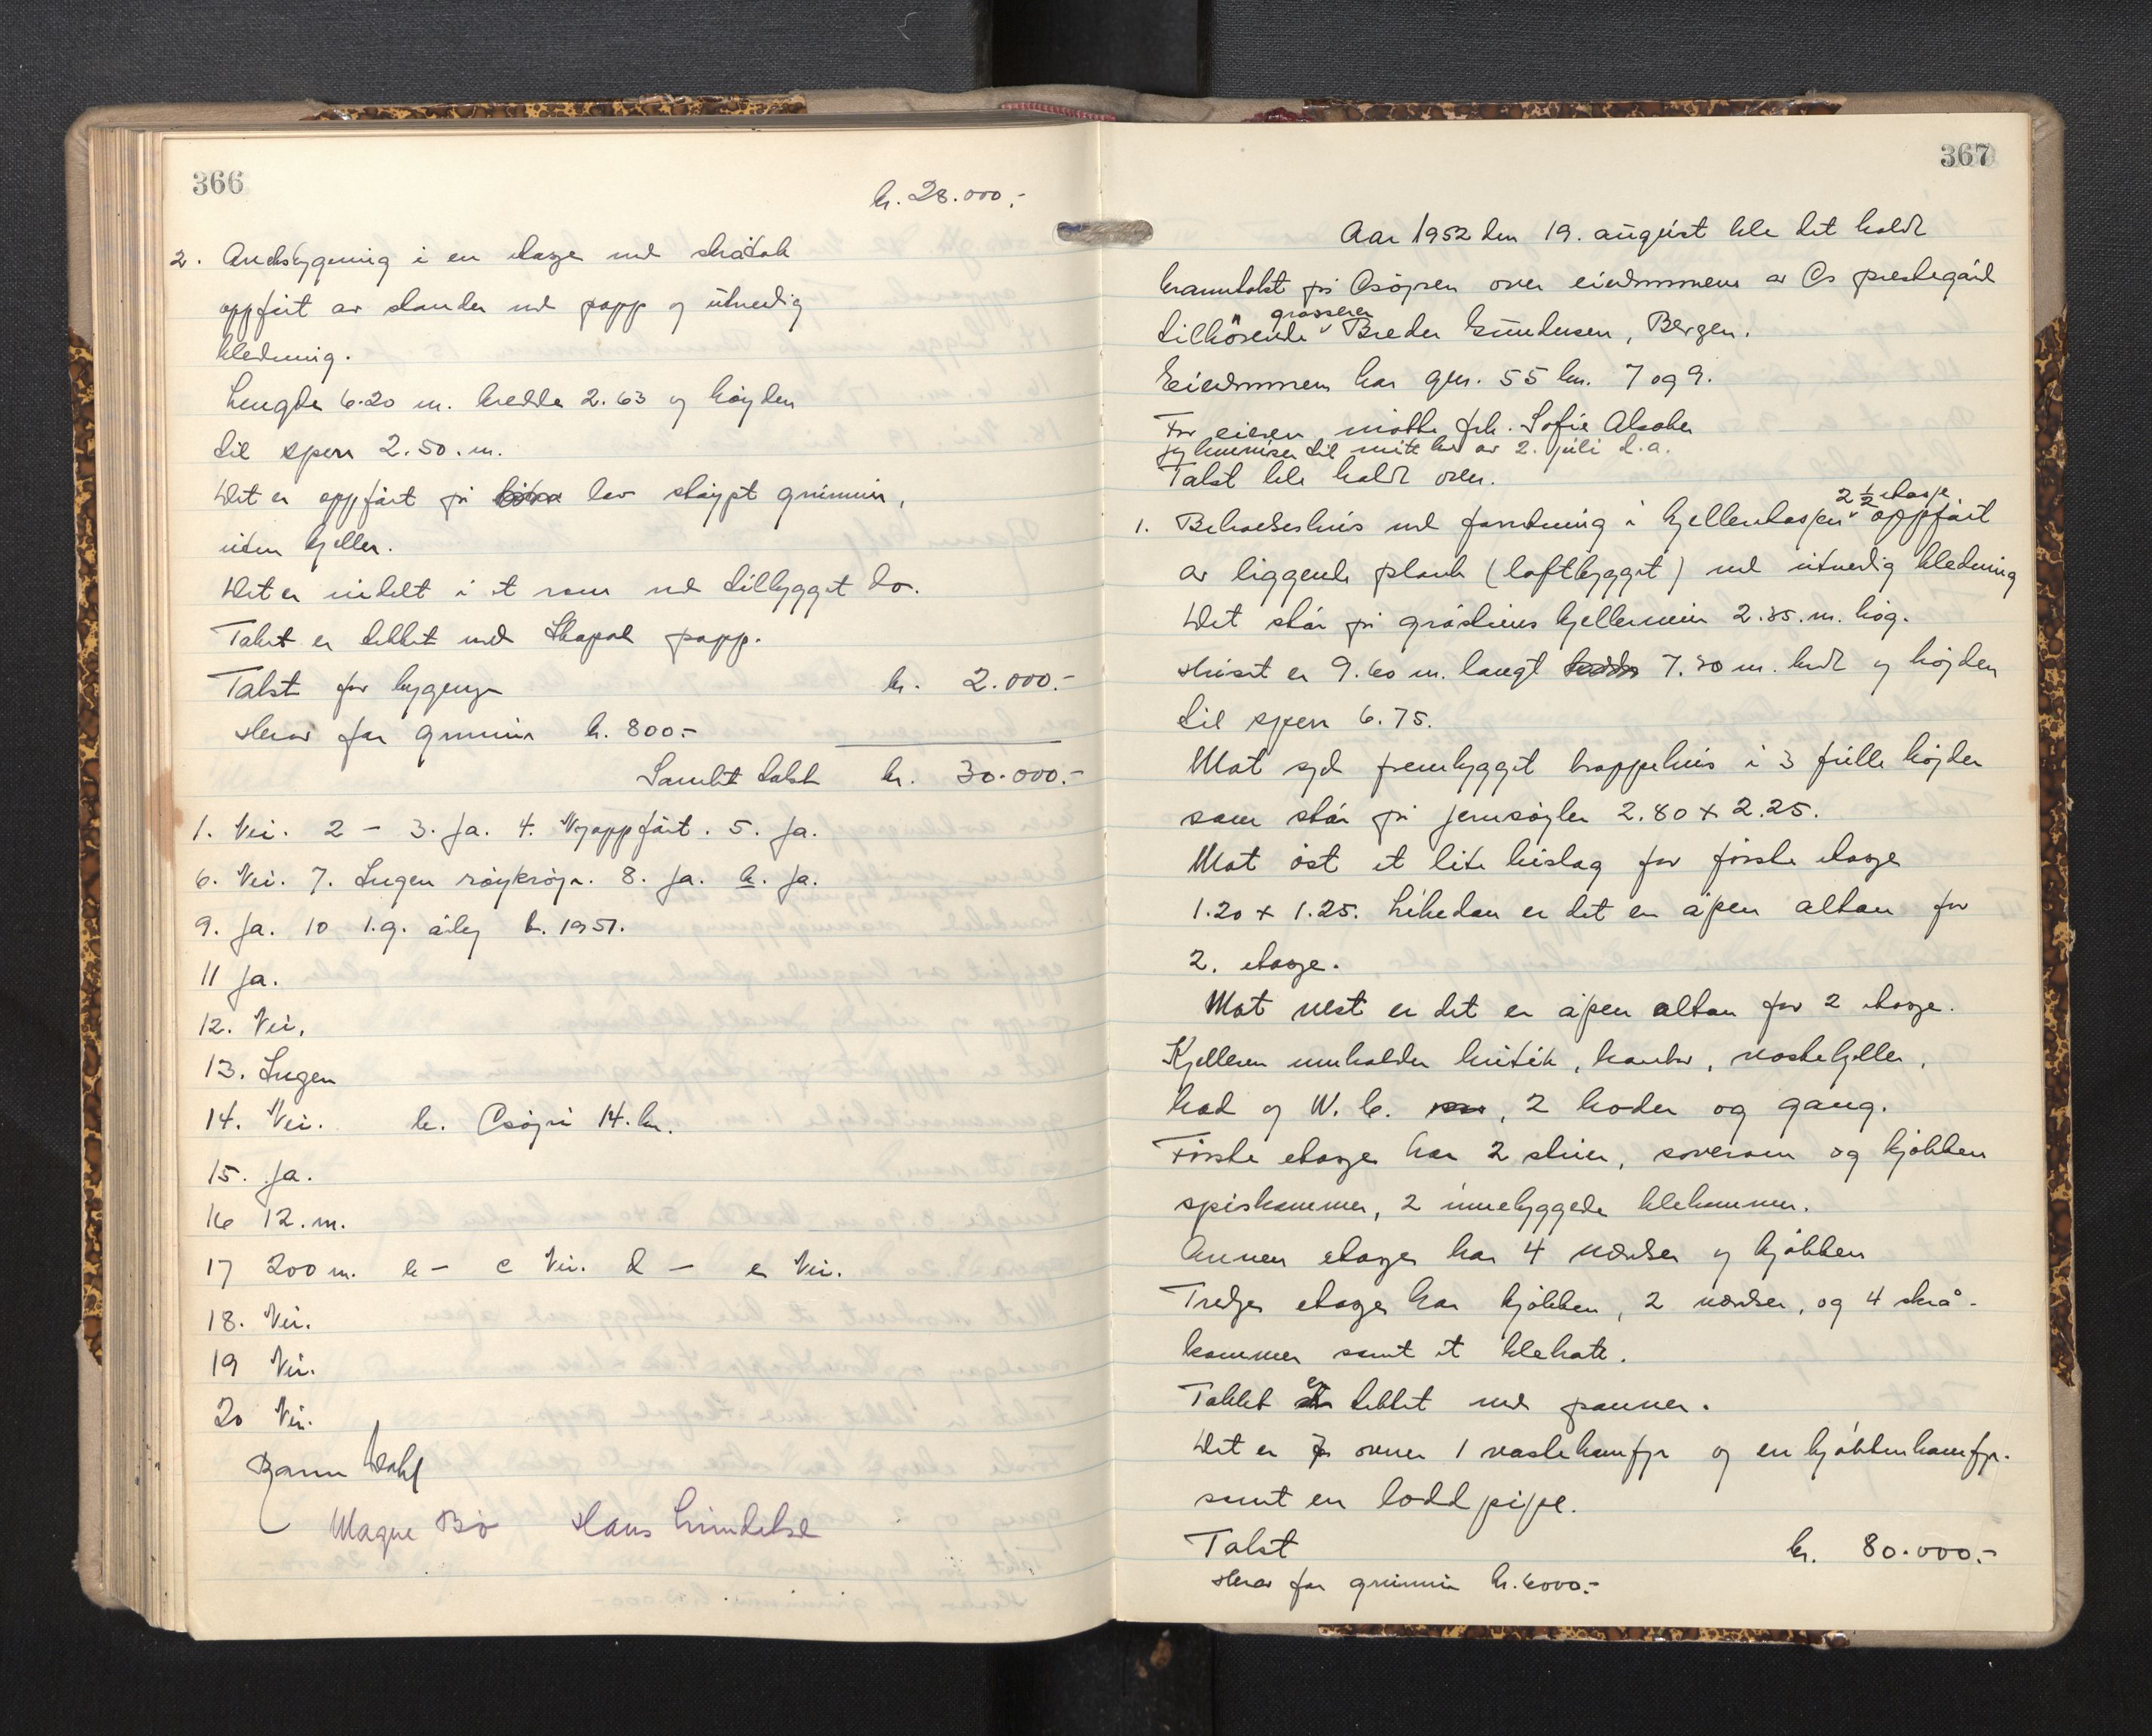 366
kr. 28.000.-
2. Aneksbygning i en etasje med skråtak
oppført av stender med papp og utvendig
kledning.
Lengde 6.20 m. bredde 2.63 og høyden
til sperr 2.50. m.
Det er oppført på lav støypt grunmur,
uten kjeller.
Det er indelt i et rom med tilbygget do.
Taket er tekket med papp.
Takst for bygningen kr. 2.000.-
Herav for grunmur kr. 800.-
Samlet takst kr. 30.000.-
1. Nei. 2 - 3. Ja. 4. Nyoppført. 5. Ja.
6. Nei. 7. Ingen røykrøyr. 8. Ja. b. Ja.
9. Ja. 10 1.g. årleg b. 1951.
11 Ja.
12. Nei.
13. Ingen
14. Nei. b. Osøyri 14. km.
15. Ja.
16 12. m.
17 200 m. b - c Nei. d - e Nei.
18. Nei.
19 Nei.
20 Nei.
Dahl
Magne Bø Hans
367
Aar 1952 den 19. august ble det holdt
branntakst på Osøyren over eiendommene av Os prestegård
tilhørende grosserer Breder Gundersen, Bergen.
Eiendommen har gnr. 55 bnr. 7 og 9.
For eieren møtte frk. Sofie Alsaker
Jeg henviser til mitt brev av 2. juli d.a.
Takst ble holdt over.
1. Beboelseshus med forretning i kjelleretasjen 2 1/2 etasje oppført
av liggende plank (loftbygget) med utvendig kledning
Det står på gråsteins kjellermur 2.35. m. høg.
Huset er 9.60 m. langt 7.30 m. bredt og højden
til sperr 6.75.
Mot syd frembygget trappehus i 3 fulle høyder
som står på jernsøyler 2.80 x 2.25.
Mot øst et lite bislag for første etasje
1.20 x 1.25. Likedan er det en åpen altan for
2. etasje.
Mot vest er det en åpen altan for 2 etasje.
Kjelleren inneholder butik, kontor, vaskekjeller,
bad og W.C., 2 boder og gang.
Første etasje har 2 stuer, soverom og kjøkken
spiskammer, 2 innebyggede klekammer.
Annen etasje har 4 værelser og kjøkken
Tredje etasje har kjøkken, 2 værelser, og 4 skrå-
kammer samt et klekott.
Takket er tekket med panner.
Det er 7 ovner 1 vaskekomfyr og en kjøkkenkomfyr.
samt en lodd pipe.
Takst kr. 80.000.-
Herav for grunmur kr. 6000.-